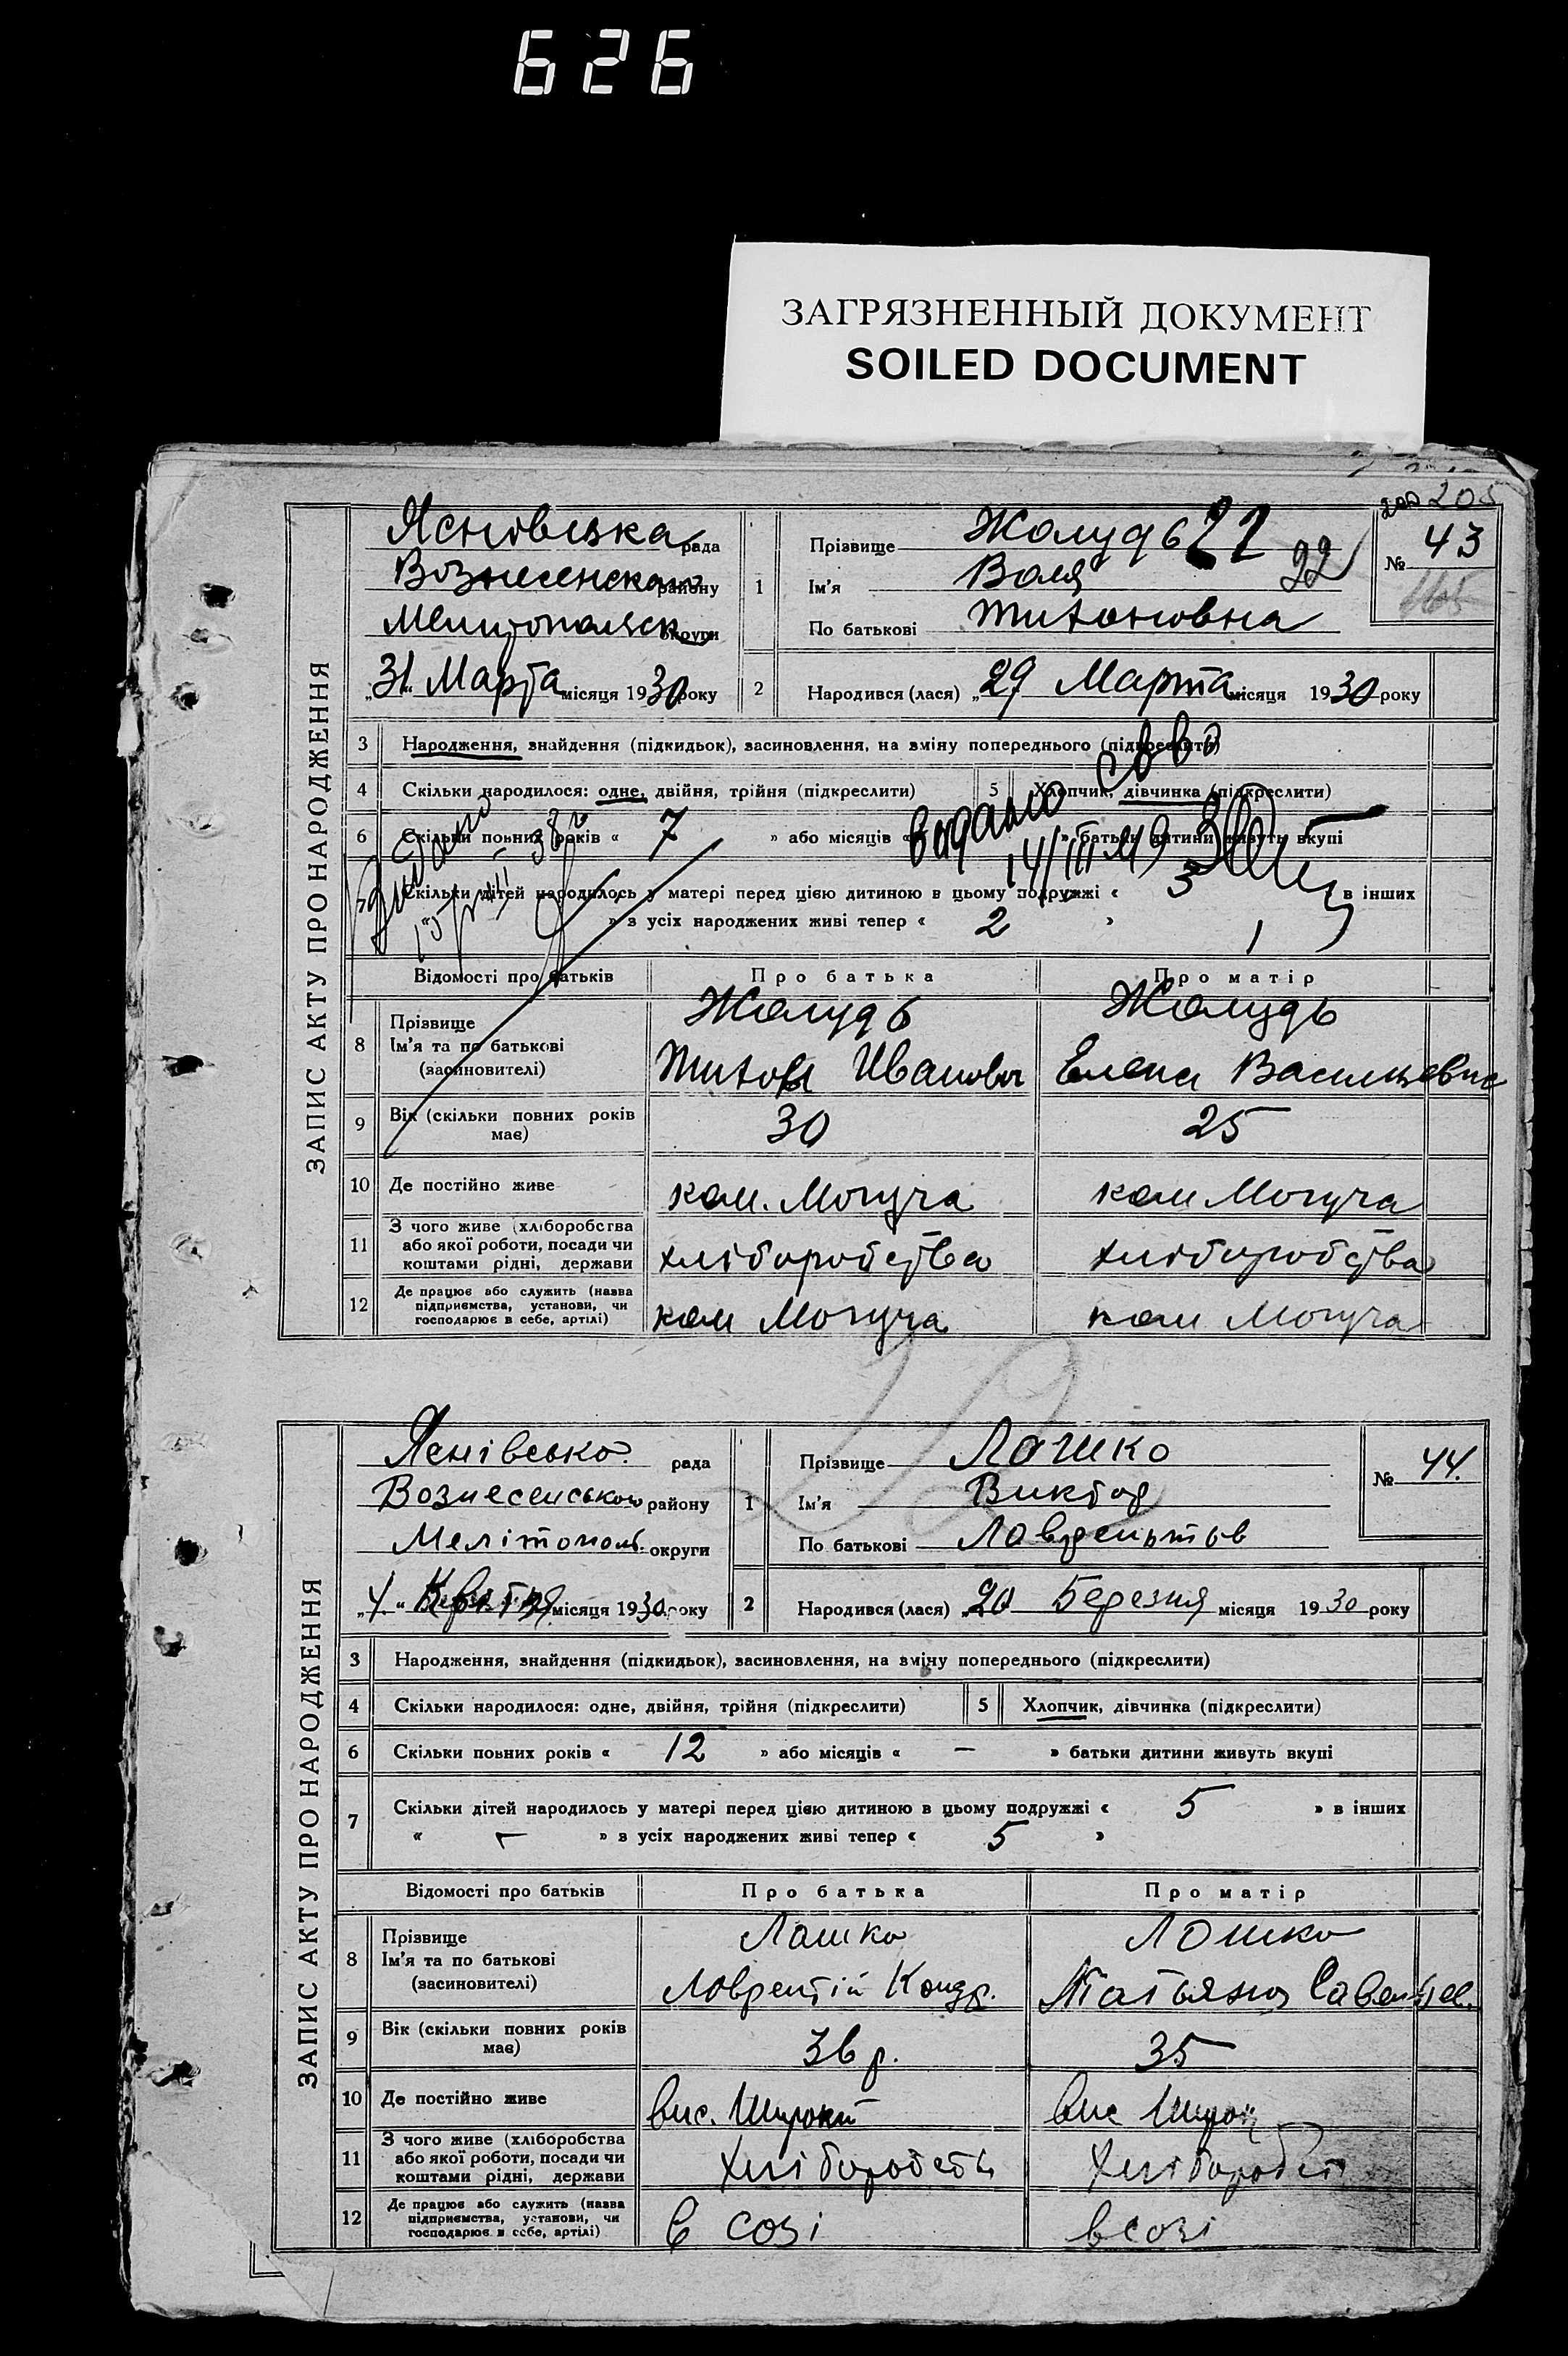 626
ЗАГРЯЗНЕННЫЙ ДОКУМЕНТ
SOILED DOCUMENT
205
ЗАПИС АКТУ ПРО НАРОДЖЕННЯ
Ясновська рада
Вознесенском району
Мелитопольск округи
„31“ Марта місяця 1930 року
1 Прізвище Жолудь 22 22
Ім'я Воля
По батькові Тихоновна
№ 43
165
2 Народився (лася) „29 Марта місяця 1930 року
3 Народження, знайдення (підкидьок), засиновлення, на зміну попереднього (підкреслити)
4 Скільки народилося: одне, двійня, трійня (підкреслити) 5 Хлопчик, дівчинка (підкреслити)
6 Скільки повних років « 7 » або місяців « » батьки дитини живуть вкупі
видано
Скільки дітей народилось у матері перед цією дитиною в цьому подружжі « 3 » в інших
» в усіх народжених живі тепер « 2 »
Відомості про батьків Про батька Про матір
8 Прізвище Ім'я та по батькові (засиновителі)
Жолудь Жолудь
Тихон Иванович Елена Васильевна
9 Вік (скільки повних років має) 30 25
10 Де постійно живе ком. Могуча ком Могуча
11 З чого живе (хліборобства або якої роботи, посади чи коштами рідні, держави хліборобства хліборобства
12 Де працює або служить (назва підприємства, установи, чи господарює в себе, артілі) ком Могуча ком Могуча
ЗАПИС АКТУ ПРО НАРОДЖЕННЯ
Яснівсько. рада
Вознесенського району
Мелітополь. округи
„4.“ Квітня місяця 1930 року
1 Прізвище Лашко
Ім'я Виктор
По батькові Лаврентьов
№ 44.
2 Народився (лася) „20 Березня місяця 1930 року
3 Народження, знайдення (підкидьок), засиновлення, на зміну попереднього (підкреслити)
4 Скільки народилося: одне, двійня, трійня (підкреслити) 5 Хлопчик, дівчинка (підкреслити)
6 Скільки повних років « 12 » або місяців « — » батьки дитини живуть вкупі
7 Скільки дітей народилось у матері перед цією дитиною в цьому подружжі « 5 » в інших
« — » в усіх народжених живі тепер « 5 »
Відомості про батьків Про батька Про матір
8 Прізвище Ім'я та по батькові (засиновителі)
Лашко Лошко
Лаврентій Кондр. Татьяна Савельев.
9 Вік (скільки повних років має) 36 р. 35
10 Де постійно живе вис. Широкий вис Широк
11 З чого живе (хліборобства або якої роботи, посади чи коштами рідні, держави Хліборобств Хліборобст
12 Де працює або служить (назва підприємства, установи, чи господарює в себе, артілі) В созі в созі